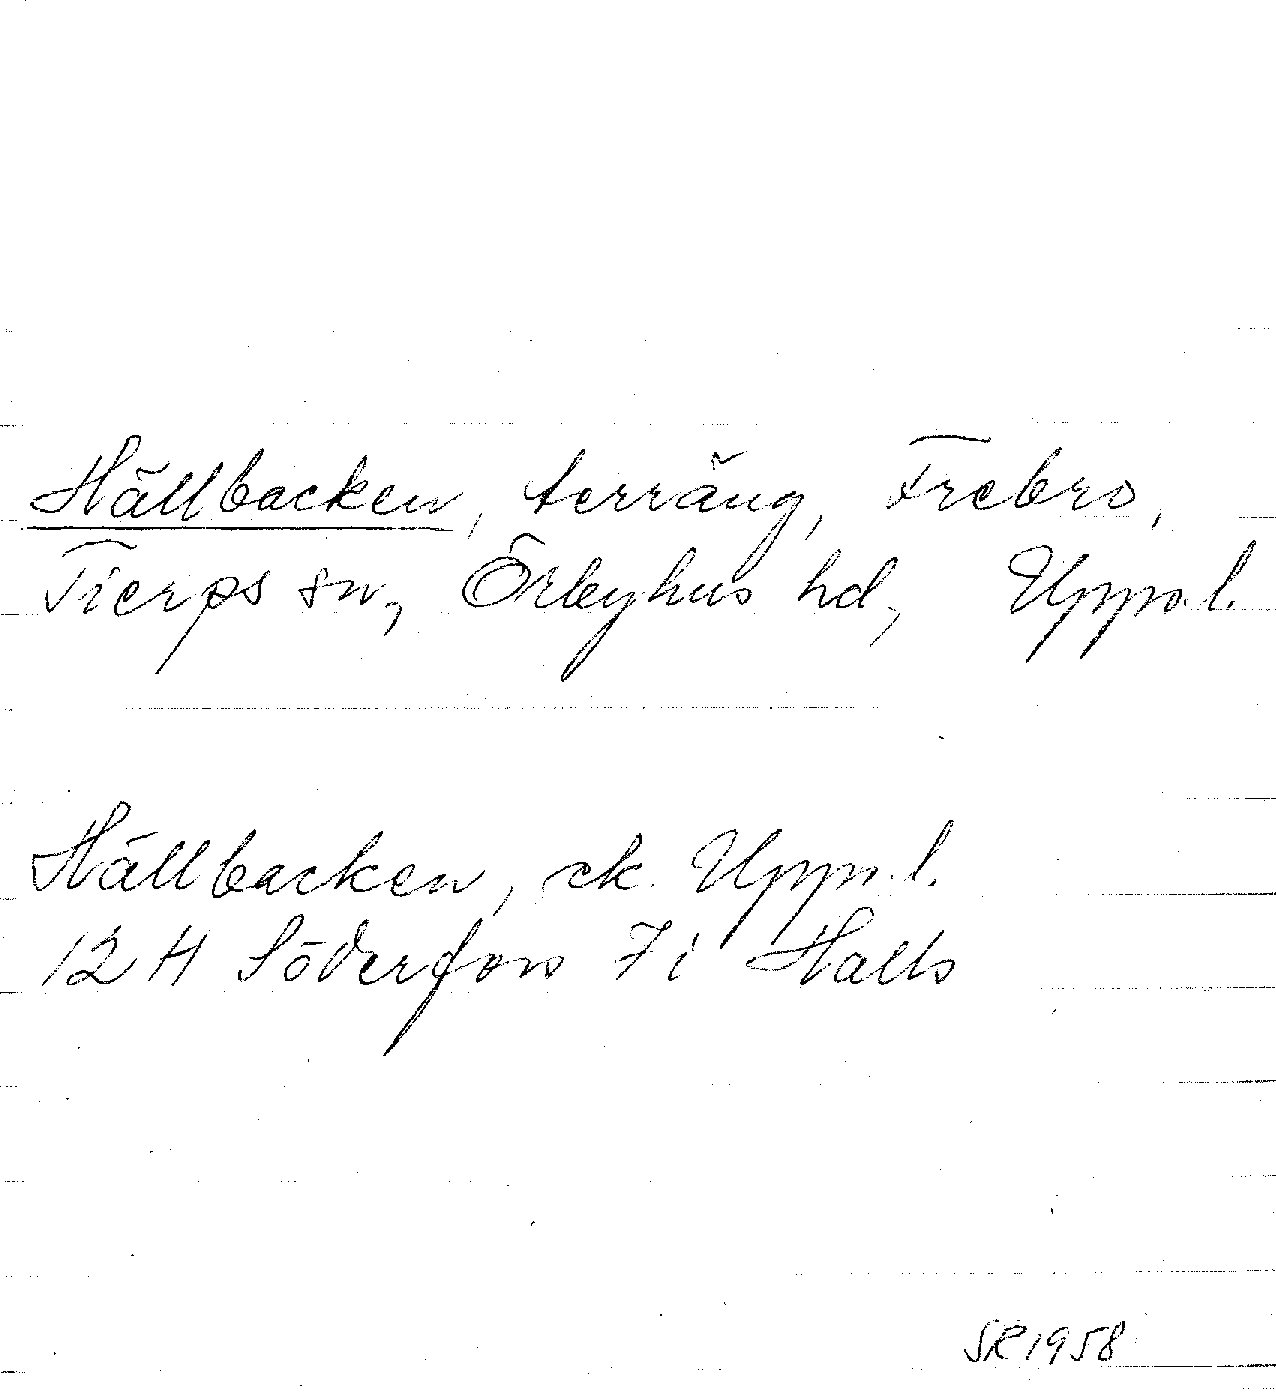 Hällbacken, terräng, Frebro,
Tierps sn, Örbyhus hd, Uppl.
Hällbacken, ek. Uppl.
12 H Söderfors 7 i Halls
SR 1958